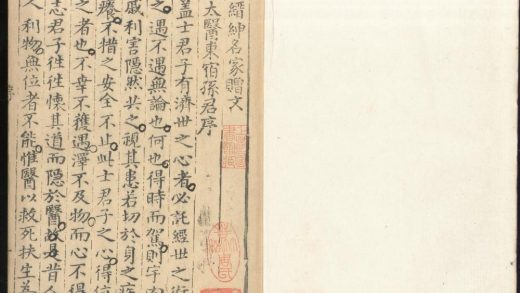 縉紳名家贈文
太醫東宿孫君序
蓋士君子有濟世之心者必託經世之術
之遇不遇無論也何也得時而駕則宇內
戚利害隱然共之視其患若切於身之疾
癢不措之安全不止此士君子之心得位
之者也不幸不獲遇澤不及物而心不得
志君子徃徃懷其道而隱於醫故是昔人
人利物無位者不能惟醫以救死扶生為